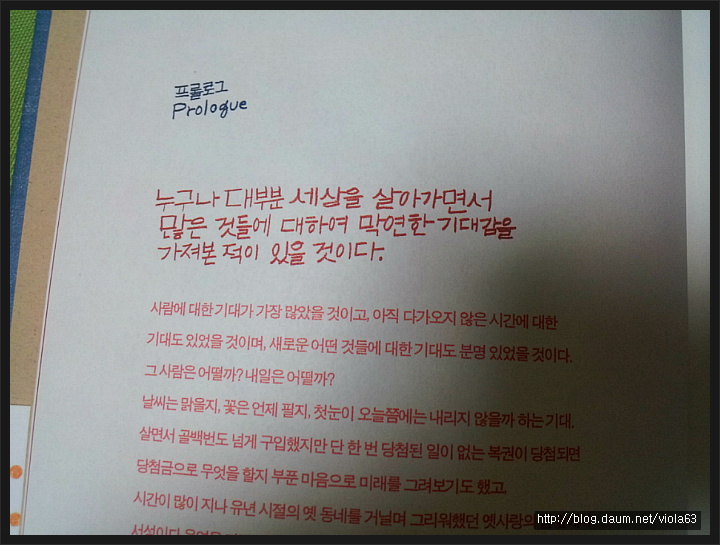 프롤로그
Prologue
누구나 대부분 세상을 살아가면서
많은 것들에 대하여 막연한 기대감을
가져본 적이 있을 것이다.
사람에 대한 기대가 가장 많았을 것이고, 아직 다가오지 않은 시간에 대한
기대도 있었을 것이며, 새로운 어떤 것들에 대한 기대도 분명 있었을 것이다.
그 사람은 어떨까? 내일은 어떨까?
날씨는 맑을지, 꽃은 언제 필지, 첫눈이 오늘쯤에는 내리지 않을까 하는 기대.
살면서 골백번도 넘게 구입했지만 단 한 번 당첨된 일이 없는 복권이 당첨되면
당첨금으로 무엇을 할지 부푼 마음으로 미래를 그려보기도 했고,
시간이 많이 지나 유년 시절의 옛 동네를 거닐며 그리워했던 옛사랑의
http://blog.daum.net/viola63